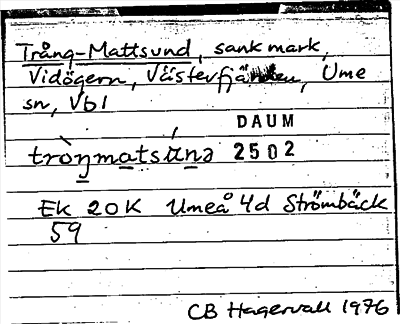 Trång-Mattsund, sank mark,
Vidögern, Västerfjärden, Ume
sn, Vbl
DAUM
tròŋmatsúnə 2502
Ek 20K Umeå 4d Strömbäck
59
CB Hagervall 1976